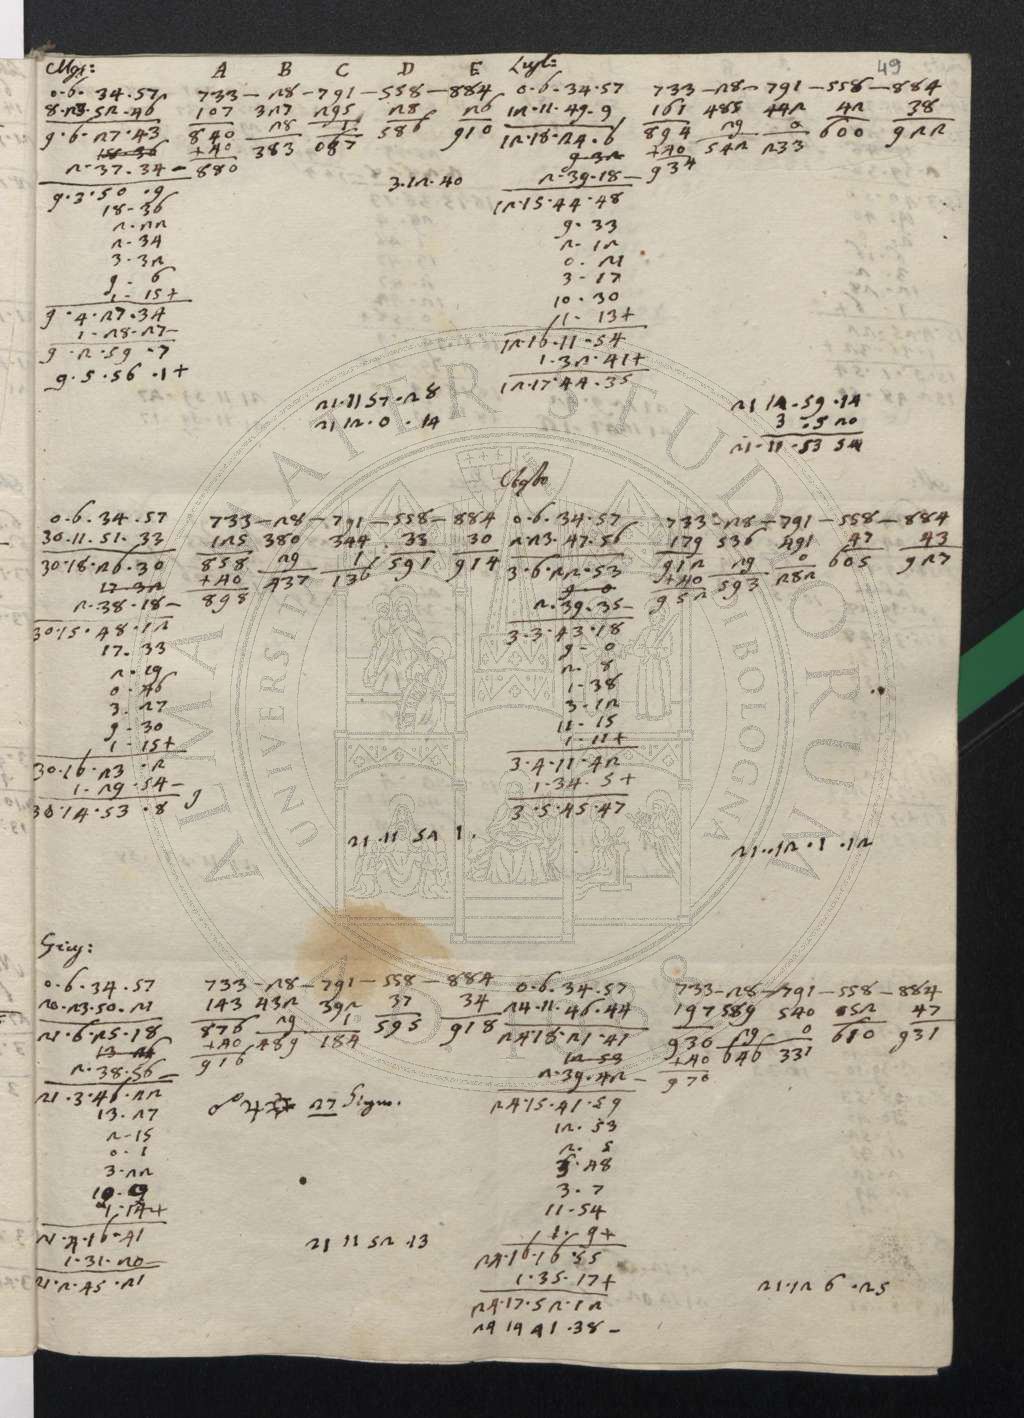 49
Mgi:
A B C D E
0.6.34.57 733–28–791–558–884
8.23.52.46 107 327 295 28 26
9.6.27.43 840 28 1 586 910
18.36 +40 383 087
2.37.34– 880
9.3.50.9 3.12.40
18.36
2.22
2.34
3.32
9.6
1.15+
9.4.27.34
1.28.27–
9.2.59.7
9.5.56.1+
21.11 57.28
21 12.0.14
Lugl:
0.6.34.57 733–28–791–558–884
12.11.49.9 161 485 442 42 38
12.18.24.6 894 29 0 600 922
9.32 +40 542 233
2.39.18– 934
12.15.44.48
9.33
2.12
0.21
3.17
10.30
11.13+
12.16.11.54
1.32.41+
12.17.44.35
21 14.59.14
3.5 20
21.11.53 54
Agto
0.6.34.57 733–28–791–558–884
30.11.51.33 125 380 344 33 30
30.18.26.30 858 29 1 591 914
17.32 +40 437 136
2.38.18– 898
30.15.48.12
17.33
2.19
0.46
3.27
9.30
1.15+
30.16.23.2
1.29.54–
30.14.53.8 9
21.11 54 1.
0.6.34.57 733–28–791–558–884
223.47.56 179 536 491 47 43
3.6.22.53 912 29 0 605 927
9.0 +40 593 282
2.39.35– 952
3.3.43.18
9.0
2.8
1.38
3.12
11.15
1.11+
3.4.11.42
1.34.5+
3.5.45.47
21.12.1.12
Giug:
0.6.34.57 733–28–791–558–884
20.23.50.21 143 432 392 37 34
21.6.25.18 876 29 1 595 918
13.26 +40 489 184
2.38.56– 916
21.3.46.22
13.27
2.15
0.1
3.22
10.9
1.14+
21.4.16.41
1.31.20–
21.2.45.21
27 Giugn.
21 11 52.13
0.6.34.57 733–28–791–558–884
24.11.46.44 197 589 540 52 47
24.18.21.41 930 29 0 610 931
12.53 +40 646 331
2.39.42– 970
24.15.41.59
12.53
2.5
3.48
3.7
11.54
11.9+
24.16.16.55
1.35.17+
24.17.52.12
24 14 41.38–
21.12 6.25